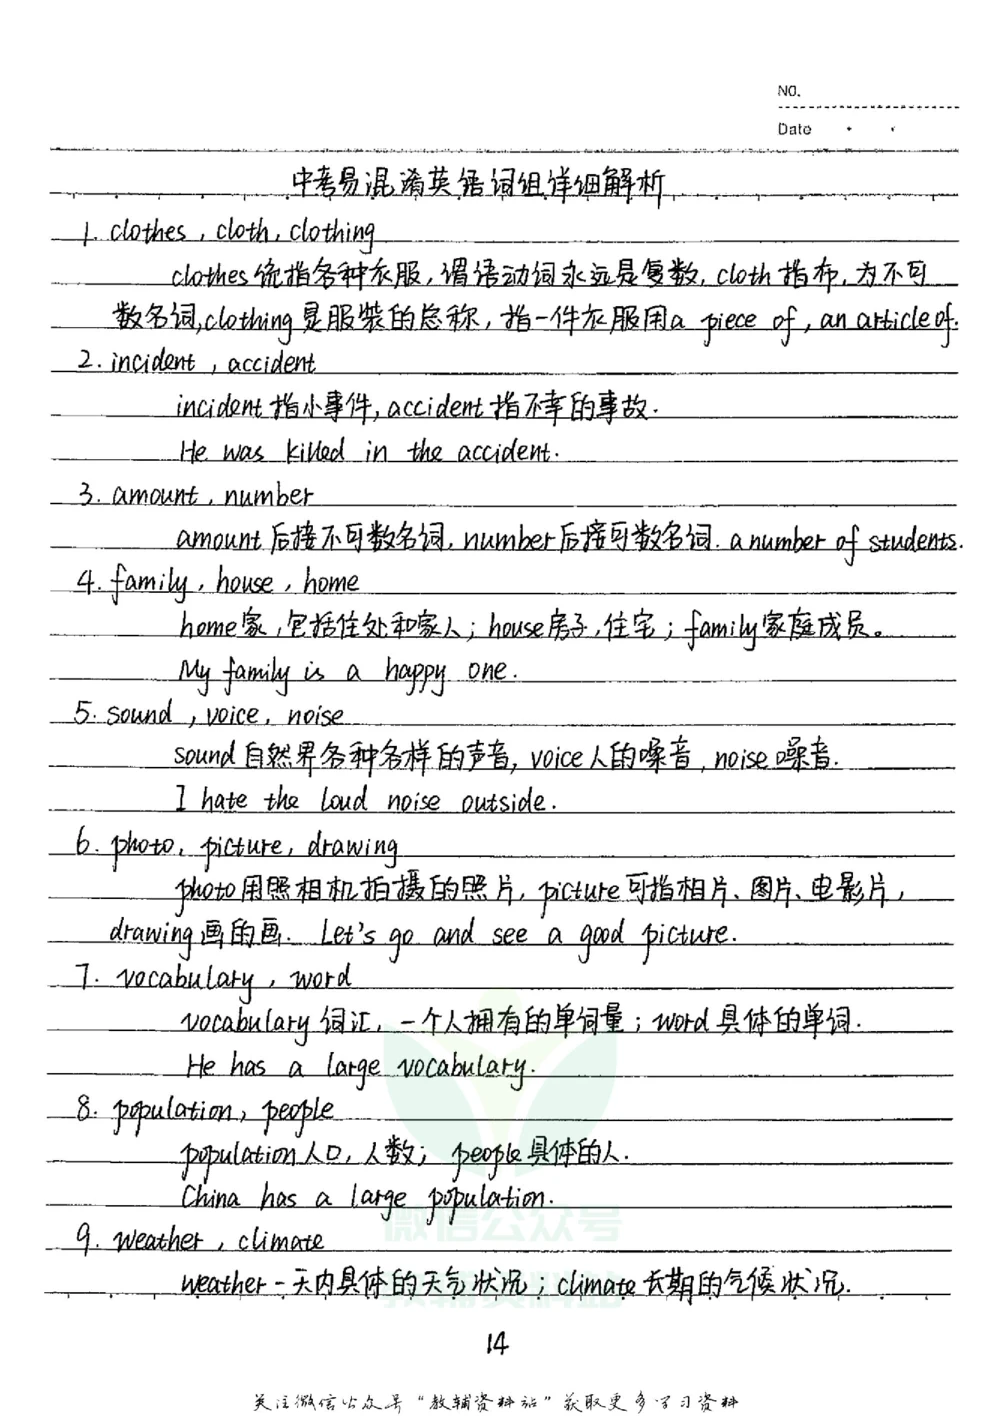 NO.
Date
中考易混淆英语词组详细解析
1. clothes, cloth, clothing
clothes统指各种衣服,谓语动词永远是复数, cloth指布,为不可
数名词,clothing是服装的总称,指一件衣服用a piece of, an article of.
2. incident, accident
incident指小事件, accident指不幸的事故.
He was killed in the accident.
3. amount, number
amount后接不可数名词, number后接可数名词. a number of students.
4. family, house, home
home家,包括住处和家人; house房子,住宅; family家庭成员。
My family is a happy one.
5. sound, voice, noise
sound自然界各种各样的声音, voice人的嗓音, noise噪音.
I hate the loud noise outside.
6. photo, picture, drawing
photo用照相机拍摄的照片, picture可指相片、图片、电影片,
drawing画的画. Let's go and see a good picture.
7. vocabulary, word
vocabulary词汇,一个人拥有的单词量; word具体的单词.
He has a large vocabulary.
8. population, people
population人口,人数; people具体的人.
China has a large population.
微信公众号
9. weather, climate
weather一天内具体的天气状况; climate长期的气候状况.
教辅资料站
14
关注微信公众号“教辅资料站”获取更多学习资料